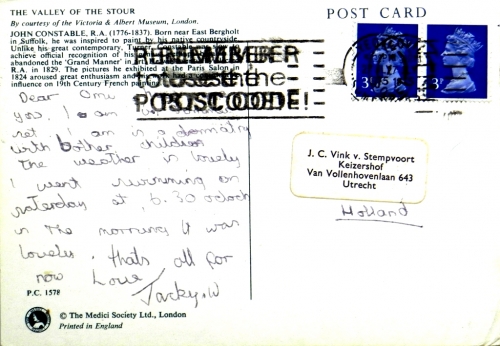 THE VALLEY OF THE STOUR
By courtesy of the Victoria & Albert Museum, London.
JOHN CONSTABLE, R.A. (1776-1837). Born near East Bergholt
in Suffolk, he was inspired to paint by his native countryside.
Unlike his great contemporary, Turner, Constable
achieve official recognition of his
abandoned the 'Grand Manner' in
R.A. in 1829. The pictures he exhibited at the Paris Salon in
1824 aroused great enthusiasm and
influence on 19th Century French painting.
POST CARD
REMEMBER
to use the
POSTCODE!
3P
3P
Dear
you. I am
am is a
with 6 other children
The weather is lovely
I went swimming on
saterday at 6.30 oclock
in the morning It was
loveley. thats all for
now Love
Jacky.W
J. C. Vink v. Stempvoort
Keizershof
Van Vollenhovenlaan 643
Utrecht
Holland
P.C. 1578
© The Medici Society Ltd., London
Printed in England